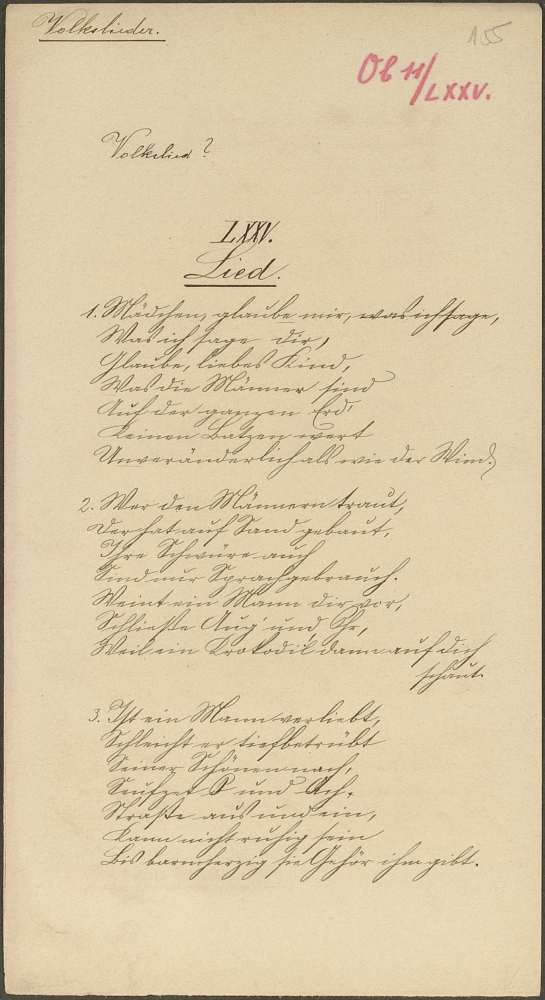 Volkslieder.
155
Ob 11/LXXV.
Volkslied?
LXXV.
Lied.
1. Mädchen, glaube mir, was ich sage,
Was ich sage dir,
Glaube, liebes Kind,
Was die Männer sind
Auf der ganzen Erd'
Keinen Batzen wert
Unveränderlich als wie der Wind.
2. Wer den Männern traut,
Der hat auf Sand gebaut,
Ihre Schwüre auch
Sind nur Sprachgebrauch.
Weint ein Mann dir vor,
Schließe Aug' und Ohr,
Weil ein Krokodil dann auf dich
schaut.
3. Ist ein Mann verliebt,
Schleicht er tiefbetrübt
Seiner Schönen nach,
Seufzet O und Ach,
Straße aus und ein,
Kann nicht ruhig sein
Bis barmherzig sie Gehör ihm gibt.